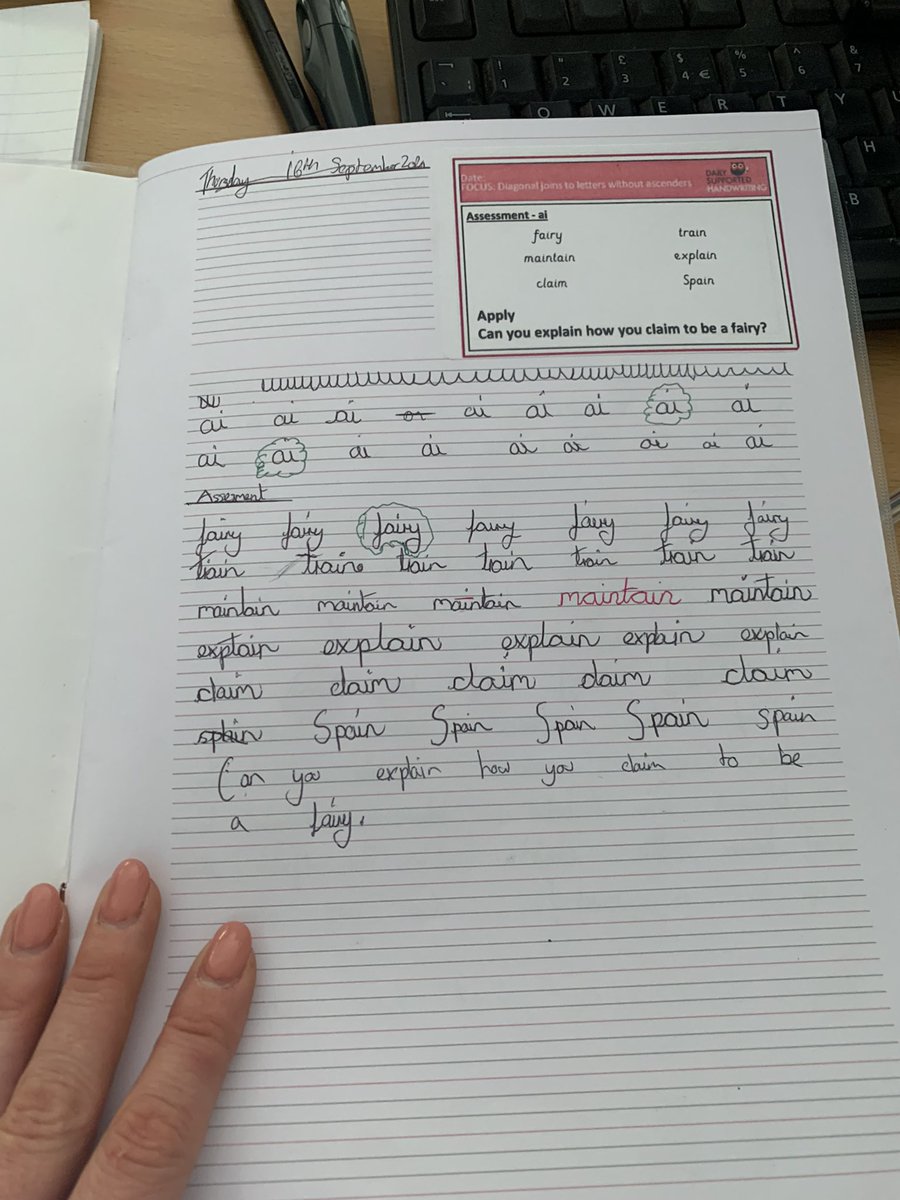 Thursday 16th September 2021
Date:
FOCUS: Diagonal joins to letters without ascenders
DAILY SUPPORTED HANDWRITING
Assessment - ai
fairy train
maintain explain
claim Spain
Apply
Can you explain how you claim to be a fairy?
ai ai ai ai ai ai ai ai
ai ai ai ai ai ai ai ai ai
Assesment
fairy fairy fairy fairy fairy fairy fairy
train train train train train train train
maintain maintain maintain maintain maintain
explain explain explain explain explain
claim claim claim claim claim
splain Spain Spain Spain Spain spain
Can you explain how you claim to be
a fairy.
! " £ $ € % ^ &
1 2 3 4 5 6 7
Q W E R T Y
H
B